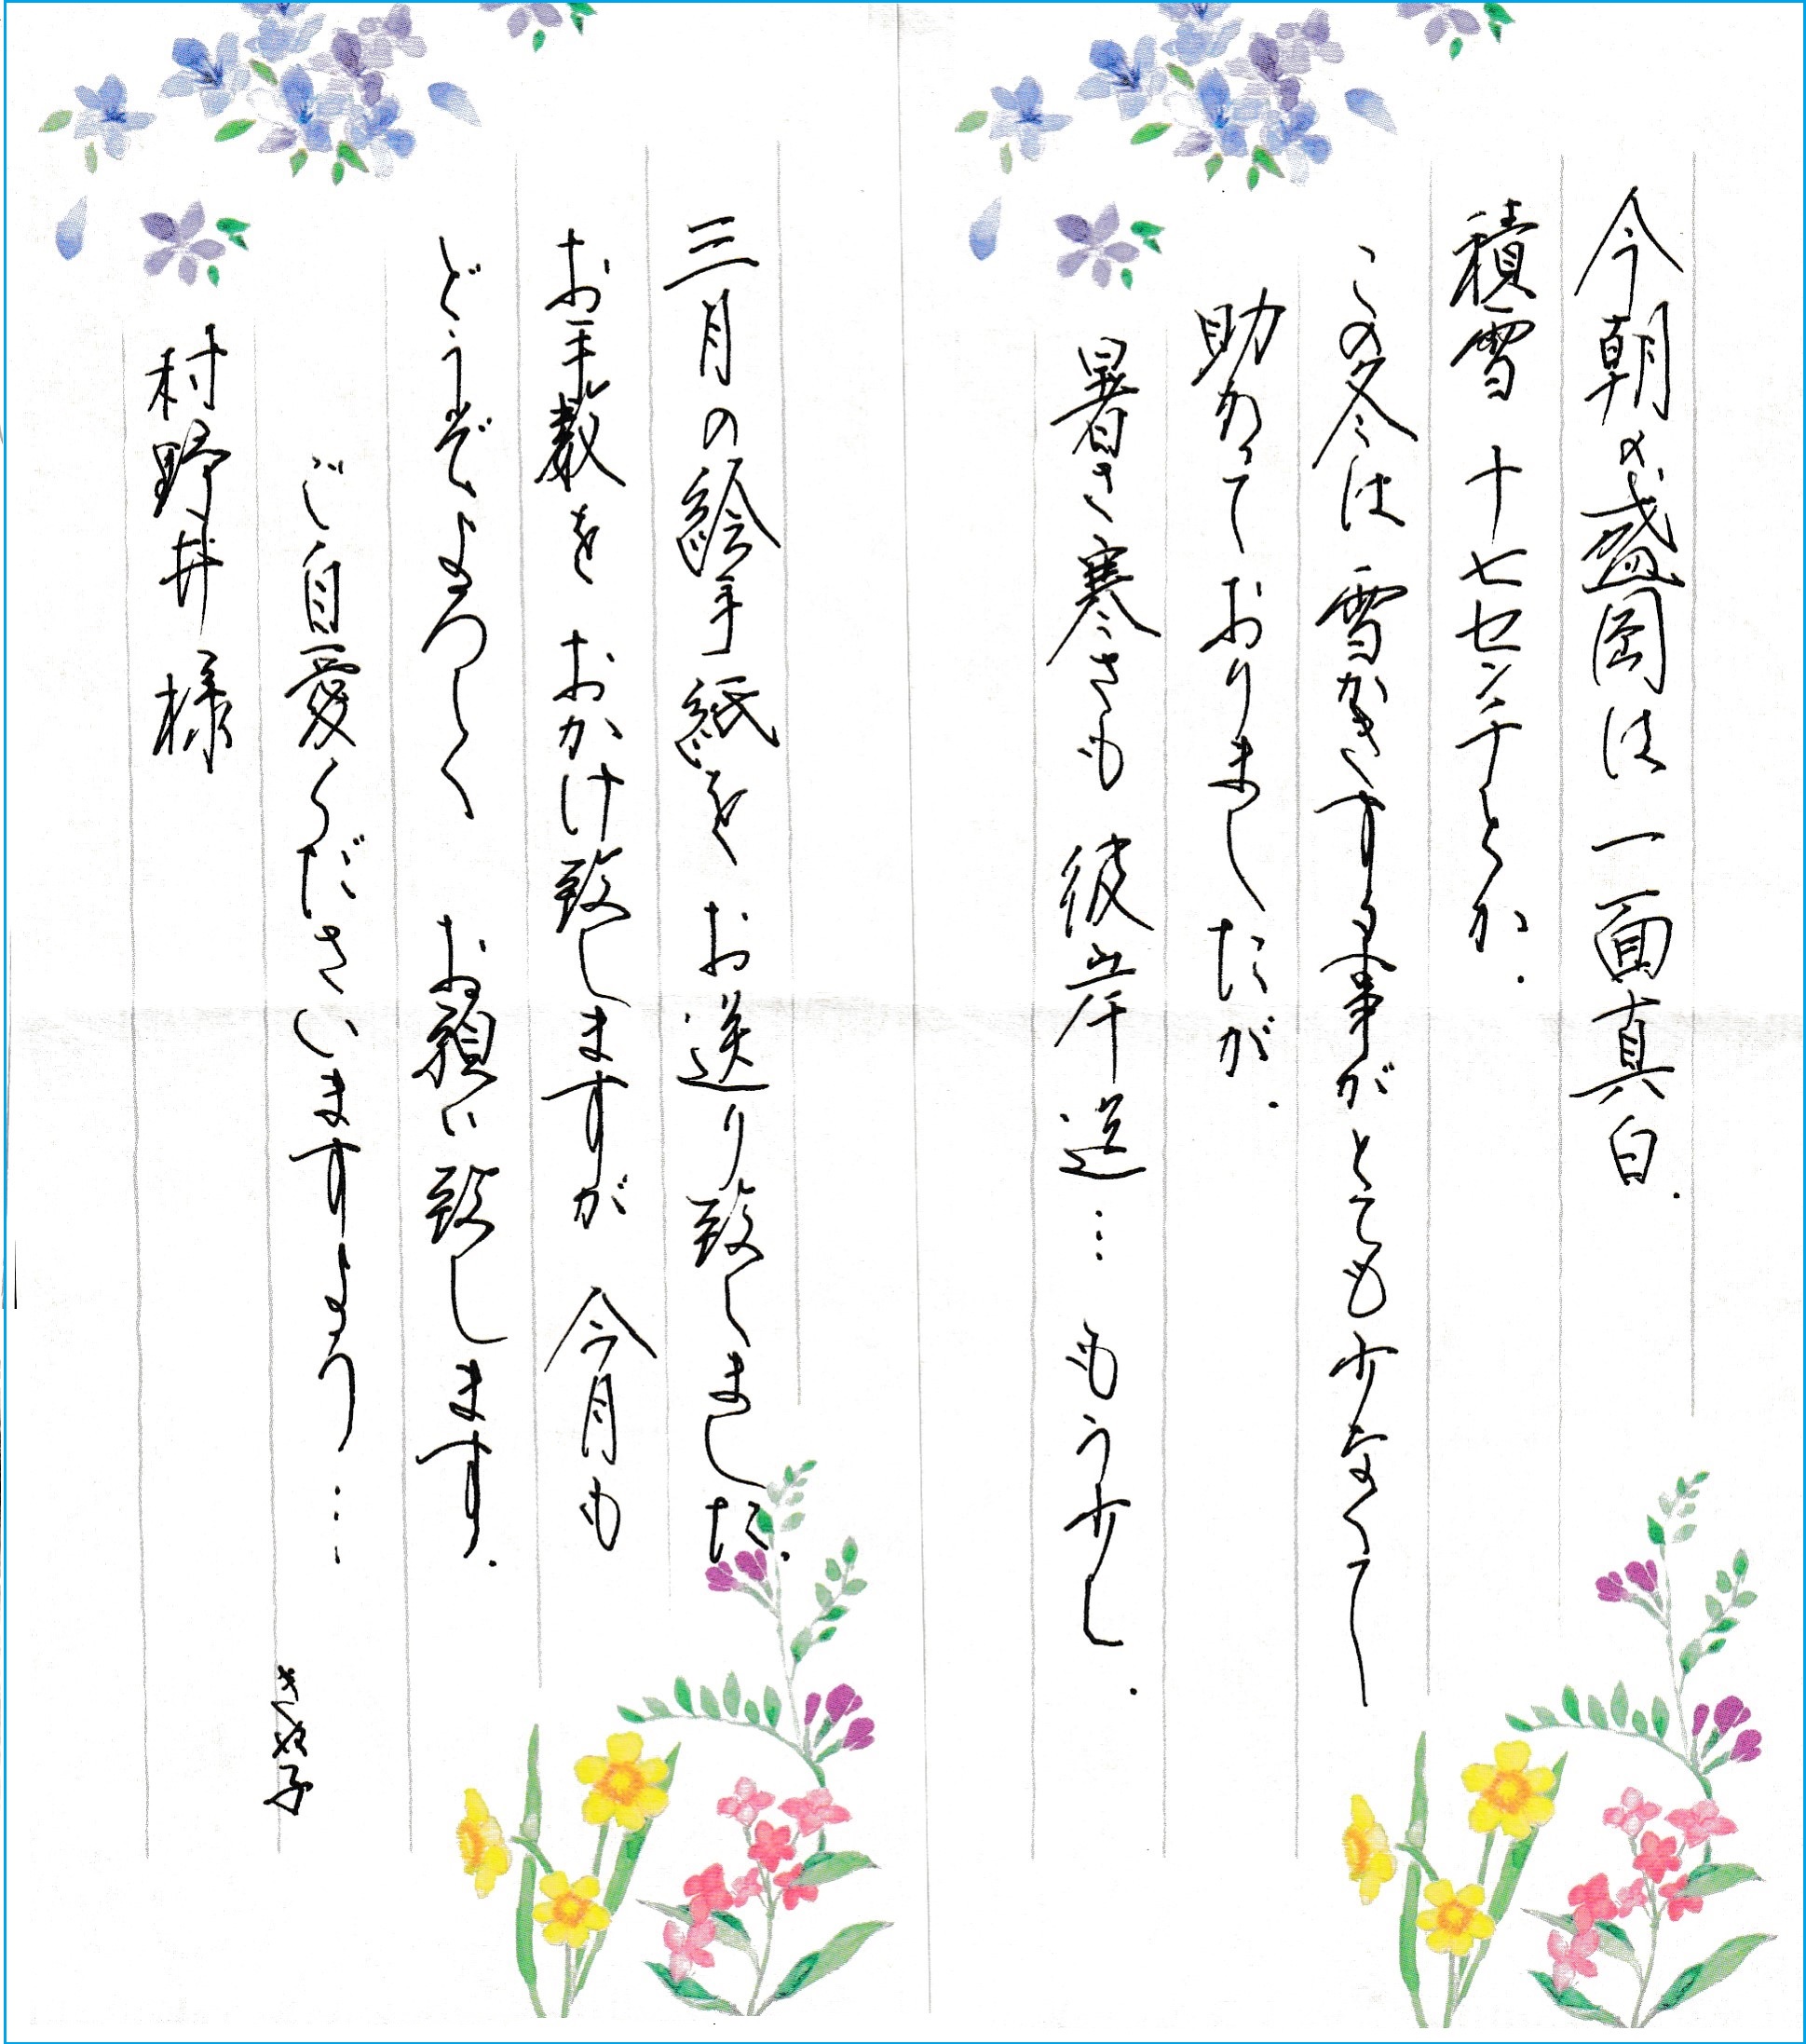 今朝の盛岡は一面真白.
積雪 十七センチとか.
この冬は 雪かきする事がとても少なくて
助かっておりましたが.
暑さ寒さも 彼岸迄… もう少し.
三月の絵手紙を お送り致しました.
お手数を おかけ致しますが 今月も
どうぞよろしく お願い致します.
ご自愛くださいますよう…
村野井様